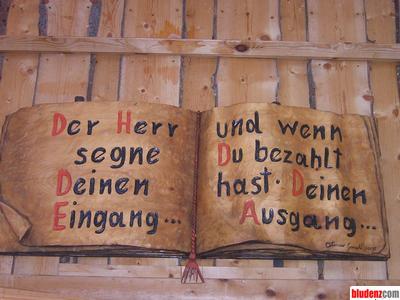 Der Herr
segne
Deinen
Eingang...
und wenn
Du bezahlt
hast. Deinen
Ausgang...
bludenz.com